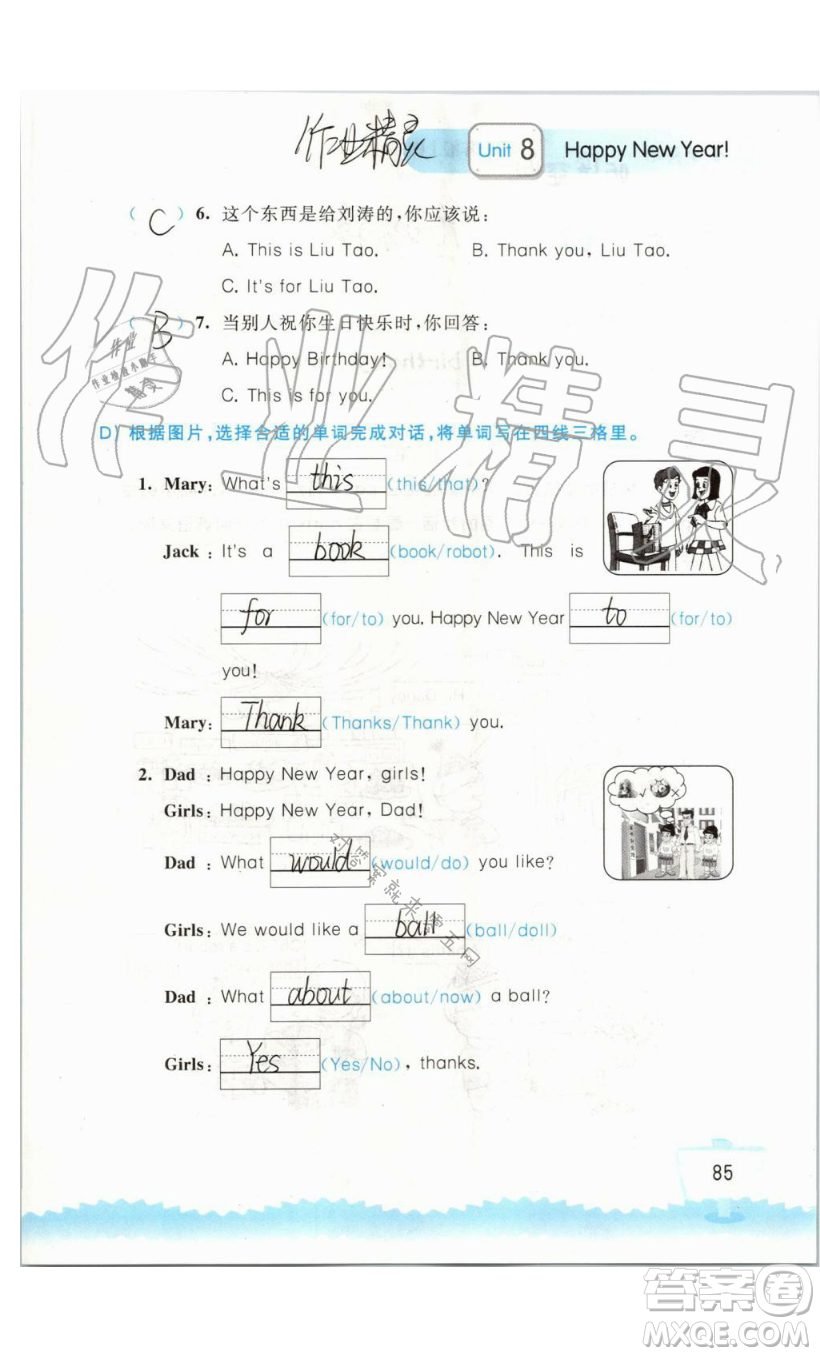 作业精灵 Unit 8 Happy New Year!
( C ) 6. 这个东西是给刘涛的,你应该说:
A. This is Liu Tao. B. Thank you, Liu Tao.
C. It's for Liu Tao.
( B ) 7. 当别人祝你生日快乐时,你回答:
A. Happy Birthday! B. Thank you.
C. This is for you.
D) 根据图片,选择合适的单词完成对话,将单词写在四线三格里。
1. Mary: What's this (this/that)?
Jack : It's a book (book/robot). This is
for (for/to) you. Happy New Year to (for/to)
you!
Mary: Thank (Thanks/Thank) you.
2. Dad : Happy New Year, girls!
Girls: Happy New Year, Dad!
Dad : What would (would/do) you like?
Girls: We would like a ball (ball/doll)
Dad : What about (about/now) a ball?
Girls: Yes (Yes/No), thanks.
85
作业精灵
作业
作业检查小助手
精灵
对答案就来零五网
答案圈
MXQE.COM